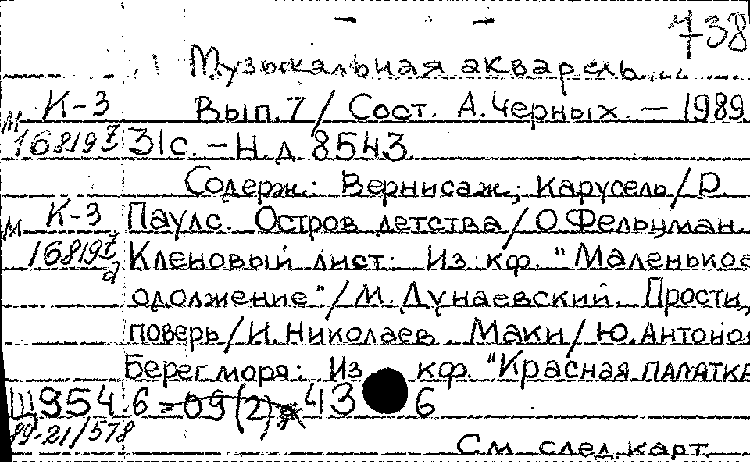 738
Музыкальная акварель.
М К-3 Вып. 7 / Сост. А. Черных. — 1989
16819 31с. — Н. д. 8543.
Содерж.: Вернисаж; Карусель / Р.
М К-3 Паулс. Остров детства / О. Фельцман.
16819 Кленовый лист: Из кф. "Маленькое
одолжение" / М. Дунаевский. Прости,
поверь / И. Николаев. Маки / Ю. Антонов
Берег моря: Из кф. "Красная палатка
Щ954.6 = 09(2) 43 6
89-21/578
См. след. карт.